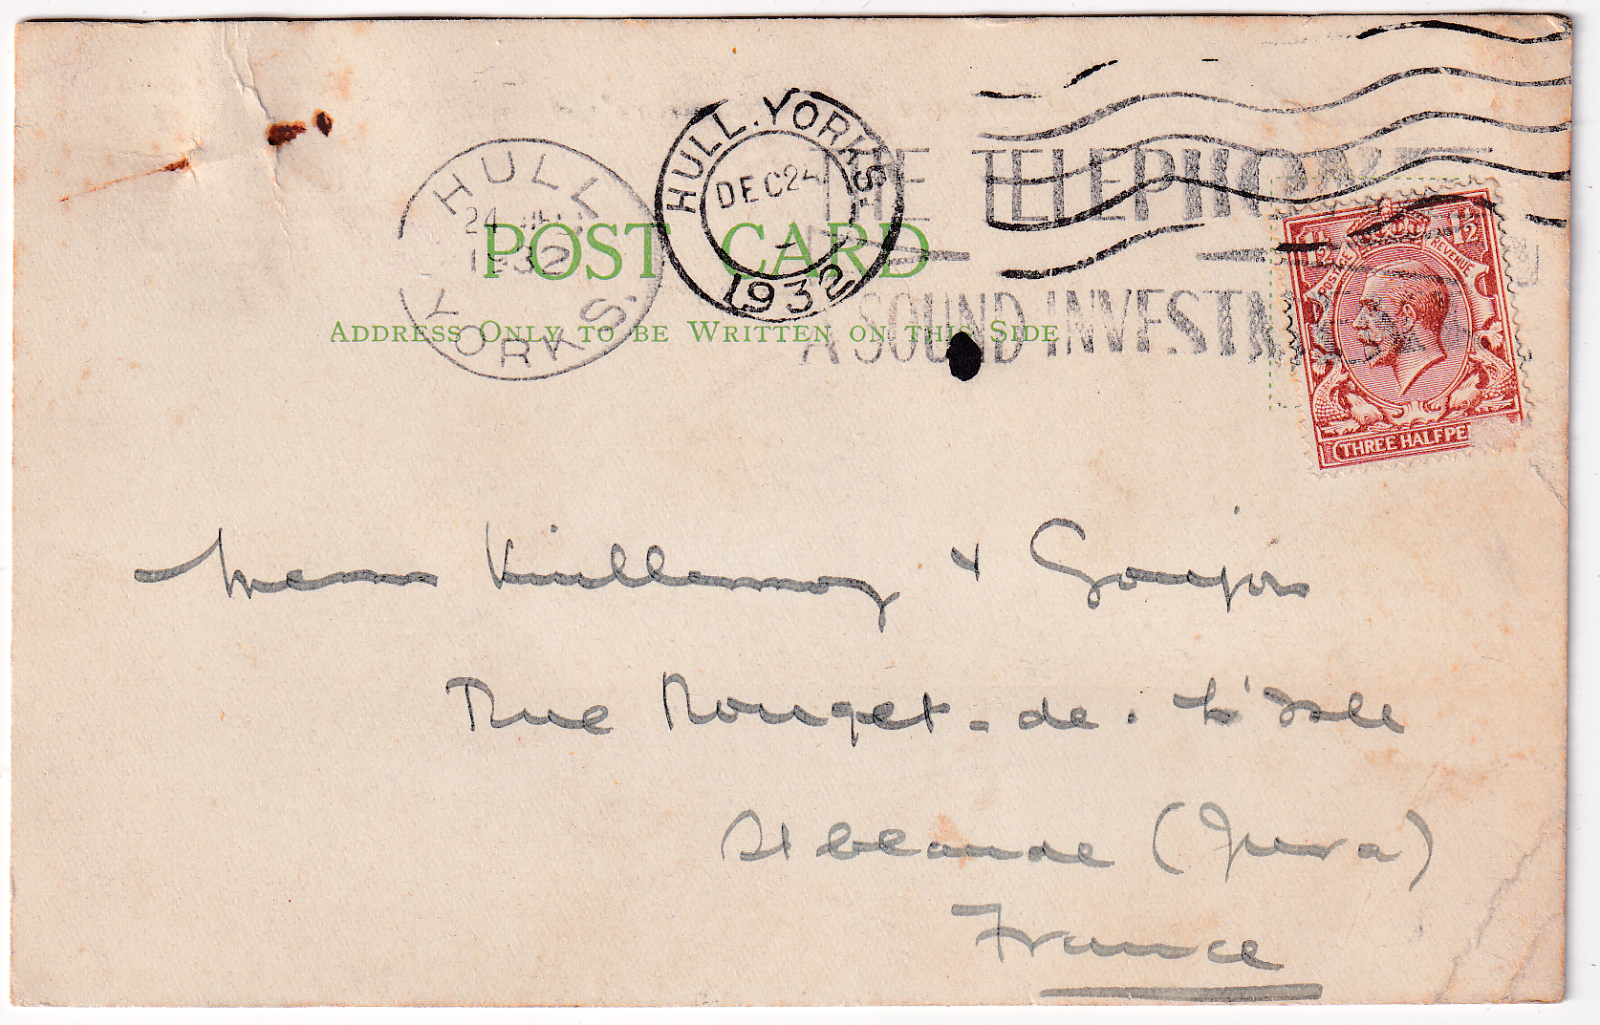 HULL
24 DEC
1932
YORKS.
HULL. YORKS.
DEC 24
1932
THE TELEPHONE
A SOUND INVESTMENT
POST CARD
ADDRESS ONLY TO BE WRITTEN ON THIS SIDE
1½ 1½
POSTAGE REVENUE
THREE HALFPE
Messrs Vuillermoz & Goujon
Rue Rouget-de-L'Isle
St Claude (Jura)
France